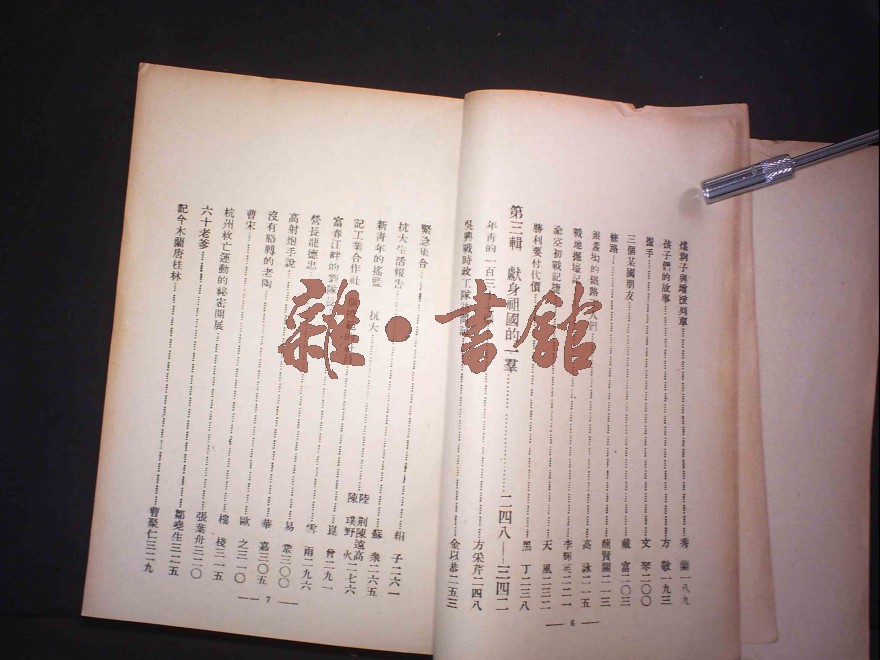 煤狗子與增援列車……秀蘭一八九
孩子們的故事……方敬一九三
握手……文琴二〇〇
三個某國朋友……戴富二〇三
修路……龍賢關二一三
的鐵路工人們……高詠二一五
戰地掘壕記……李輝英二二一
空初戰記……天風二三二
勝利要付代價……黑丁二三八
第三輯 獻身祖國的一羣……二四八——三四二
年靑的一百三……方采芹二四八
吳興戰時政工隊……金以恭二五三
— 6 —
緊急集合……絹子二六一
抗大生活報告……蘇衆二六五
新靑年的搖籃 抗大……陸荆 陳遠高
記工業合作社……陳璞 野火二七六
富春江畔的劉隊長……崑曾二九一
營長龍德忠……雪雨二九六
高射炮手說……易業三〇〇
沒有胳轉的老陶……華嘉三〇五
曹宋……歐之三一〇
杭州救亡運動的祕密開展……樓棧三一五
六十老爹……張葉舟三二〇
記今木蘭唐桂林……鄒堯生三二五
曹聚仁三二九
— 7 —
雜·書館